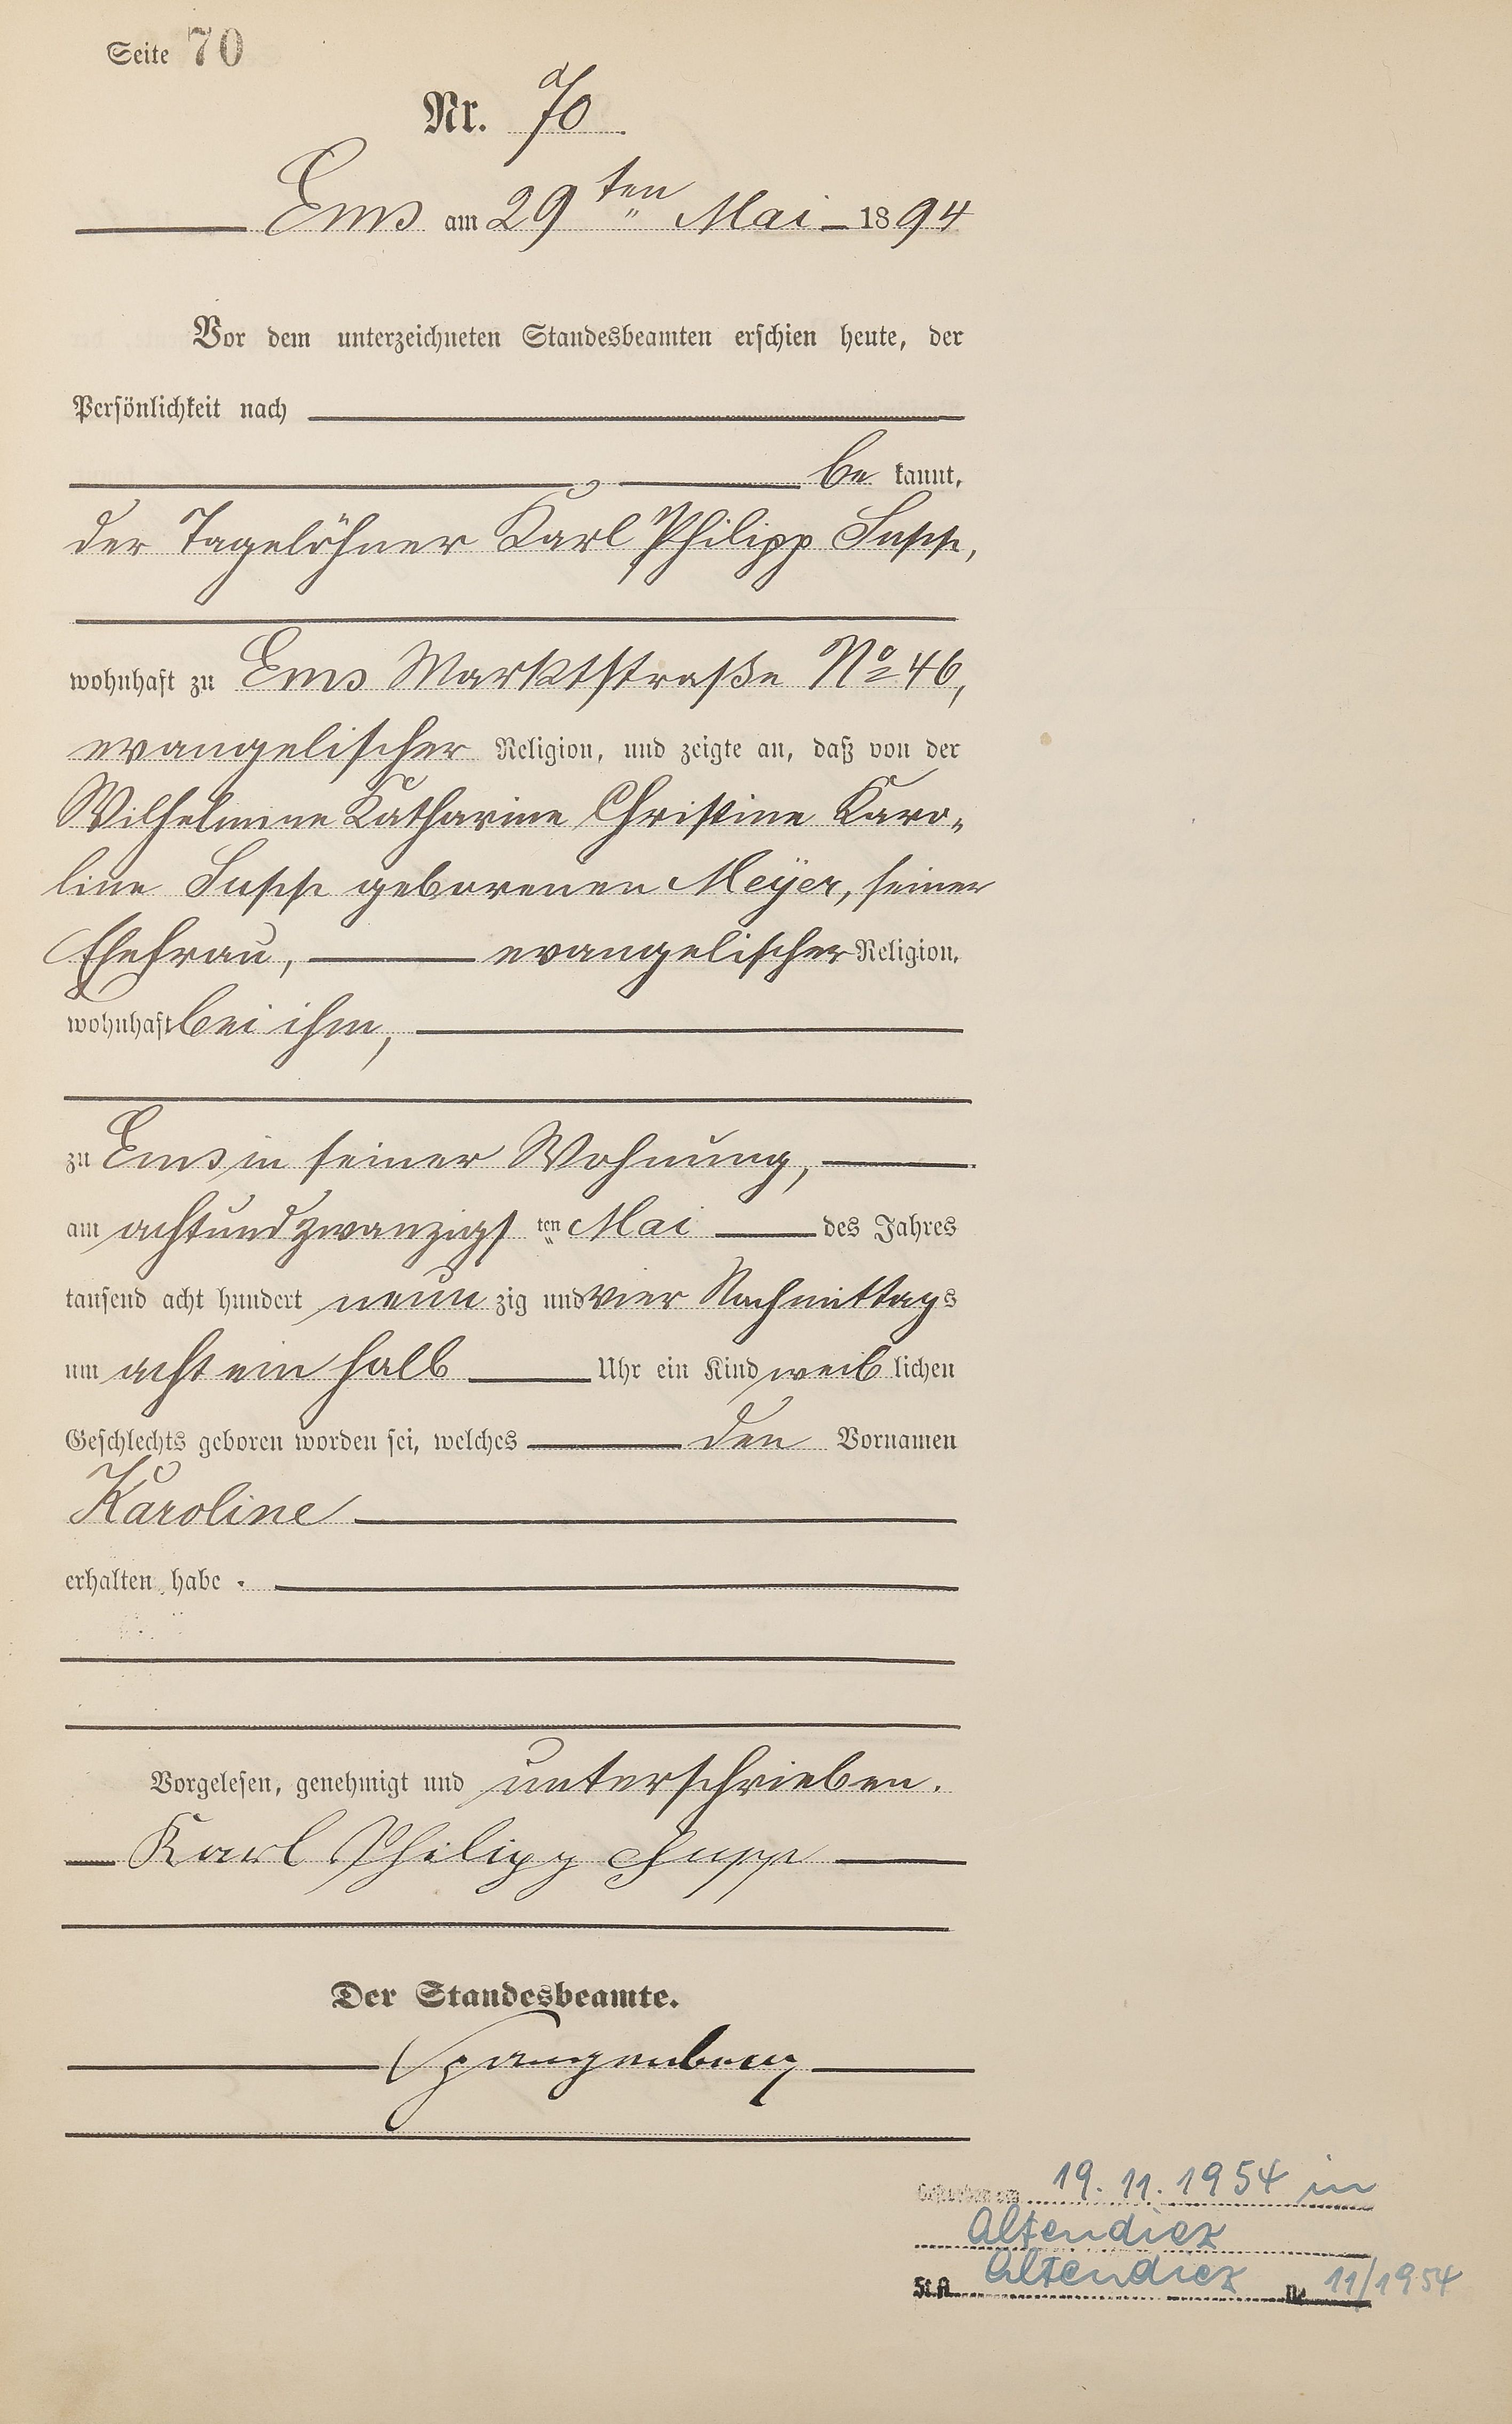 Seite 70
Nr. 70
Ems am 29ten Mai 1894
Vor dem unterzeichneten Standesbeamten erschien heute, der
Persönlichkeit nach
be kannt,
der Tagelöhner Karl Philipp Supp,
wohnhaft zu Ems Marktstraße No 46,
evangelischer Religion, und zeigte an, daß von der
Wilhelmine Katharine Christine Karo-
line Supp geborenen Meÿer, seiner
Ehefrau, evangelischer Religion,
wohnhaft bei ihm,
zu Ems in seiner Wohnung,
am achtundzwanzigs ten Mai des Jahres
tausend acht hundert neun zig und vier Nachmittags
um acht ein halb Uhr ein Kind weib lichen
Geschlechts geboren worden sei, welches den Vornamen
Karoline
erhalten habe.
Vorgelesen, genehmigt und unterschrieben.
Karl Philipp Supp
Der Standesbeamte.
Spangenberg
Gestorben am 19.11.1954 in
Altendiez
St.A. Altendiez Nr. 11/1954